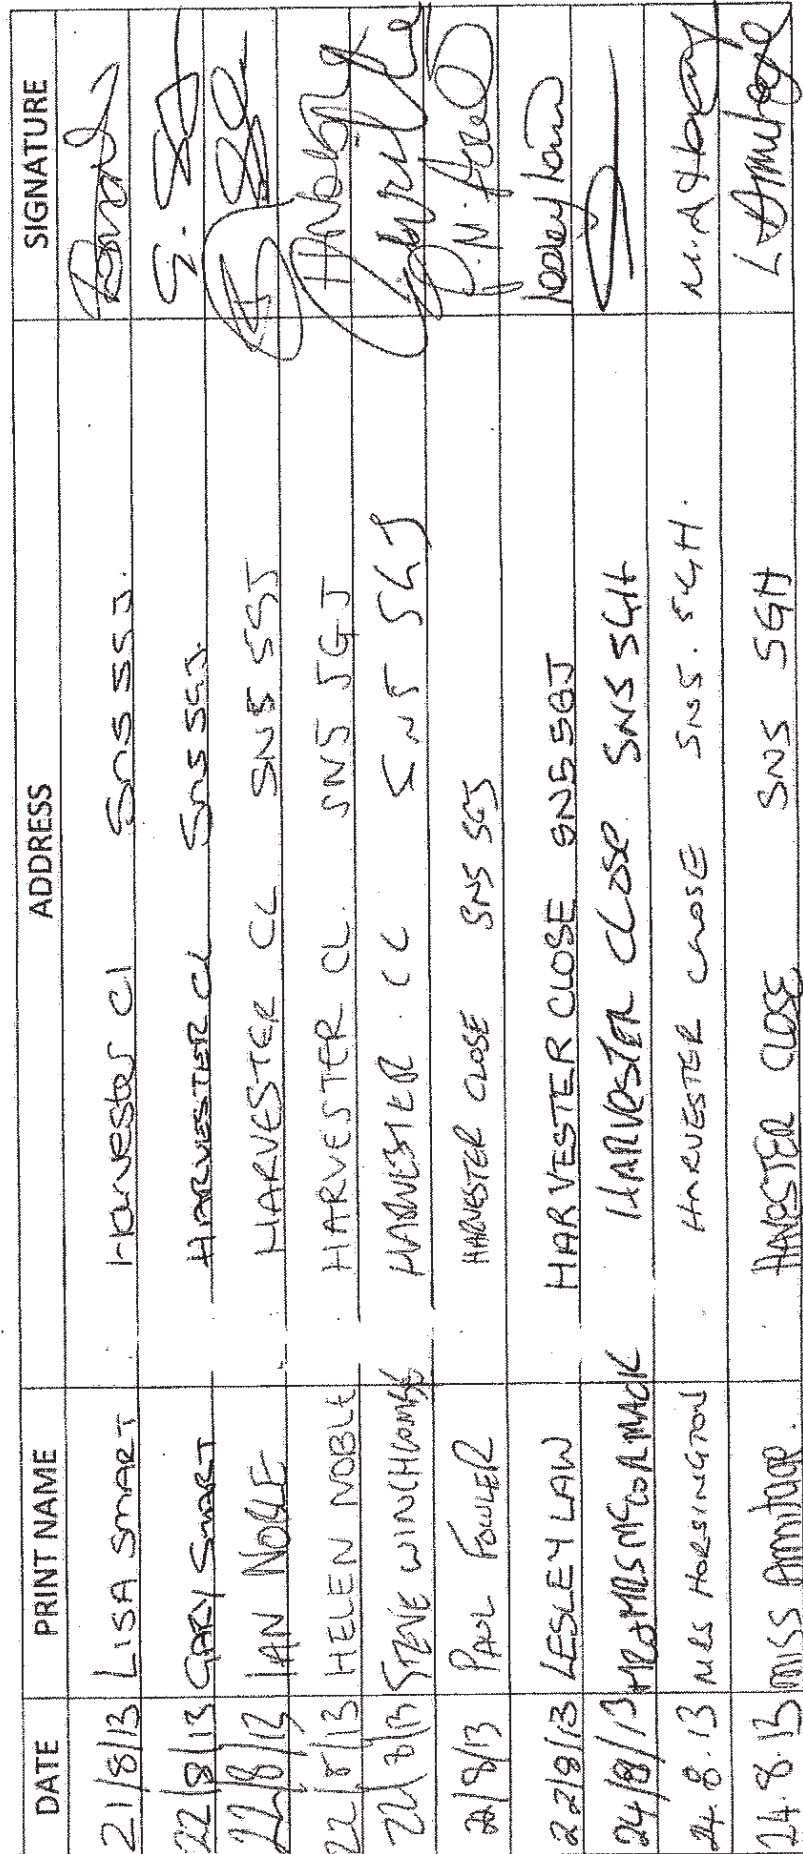 DATE PRINT NAME ADDRESS SIGNATURE
21/8/13 LISA SMART Harvester Cl SN5 5GJ.
22/8/13 GARY SMART HARVESTER CL SN5 5GJ.
22/8/13 IAN NOBLE HARVESTER CL SN5 5GJ
22/8/13 HELEN NOBLE HARVESTER CL. SN5 5GJ HNoble
22/8/13 STEVE WINCHCOMBE HARVESTER . CL SN5 5GJ
22/8/13 PAUL FOWLER HARVESTER CLOSE SN5 5GJ
22/8/13 LESLEY LAW HARVESTER CLOSE SN5 5GJ Lesley Law
24/8/13 MR & MRS MCCORMACK HARVESTER CLOSE SN5 5GH
24.8.13 MRS HORSINGTON HARVESTER CLOSE SN5. 5GH.
24.8.13 MISS Armitage. HAVESTER CLOSE SN5 5GH L Armitage